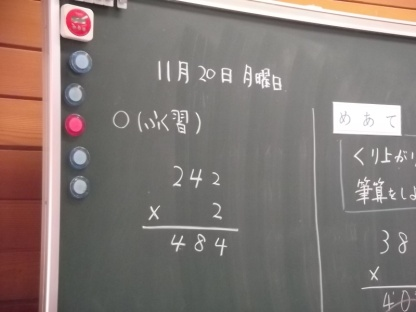 11月20日 月曜日
○(ふく習)
242
× 2
484
めあて
くり上がり
筆算をし
38
×